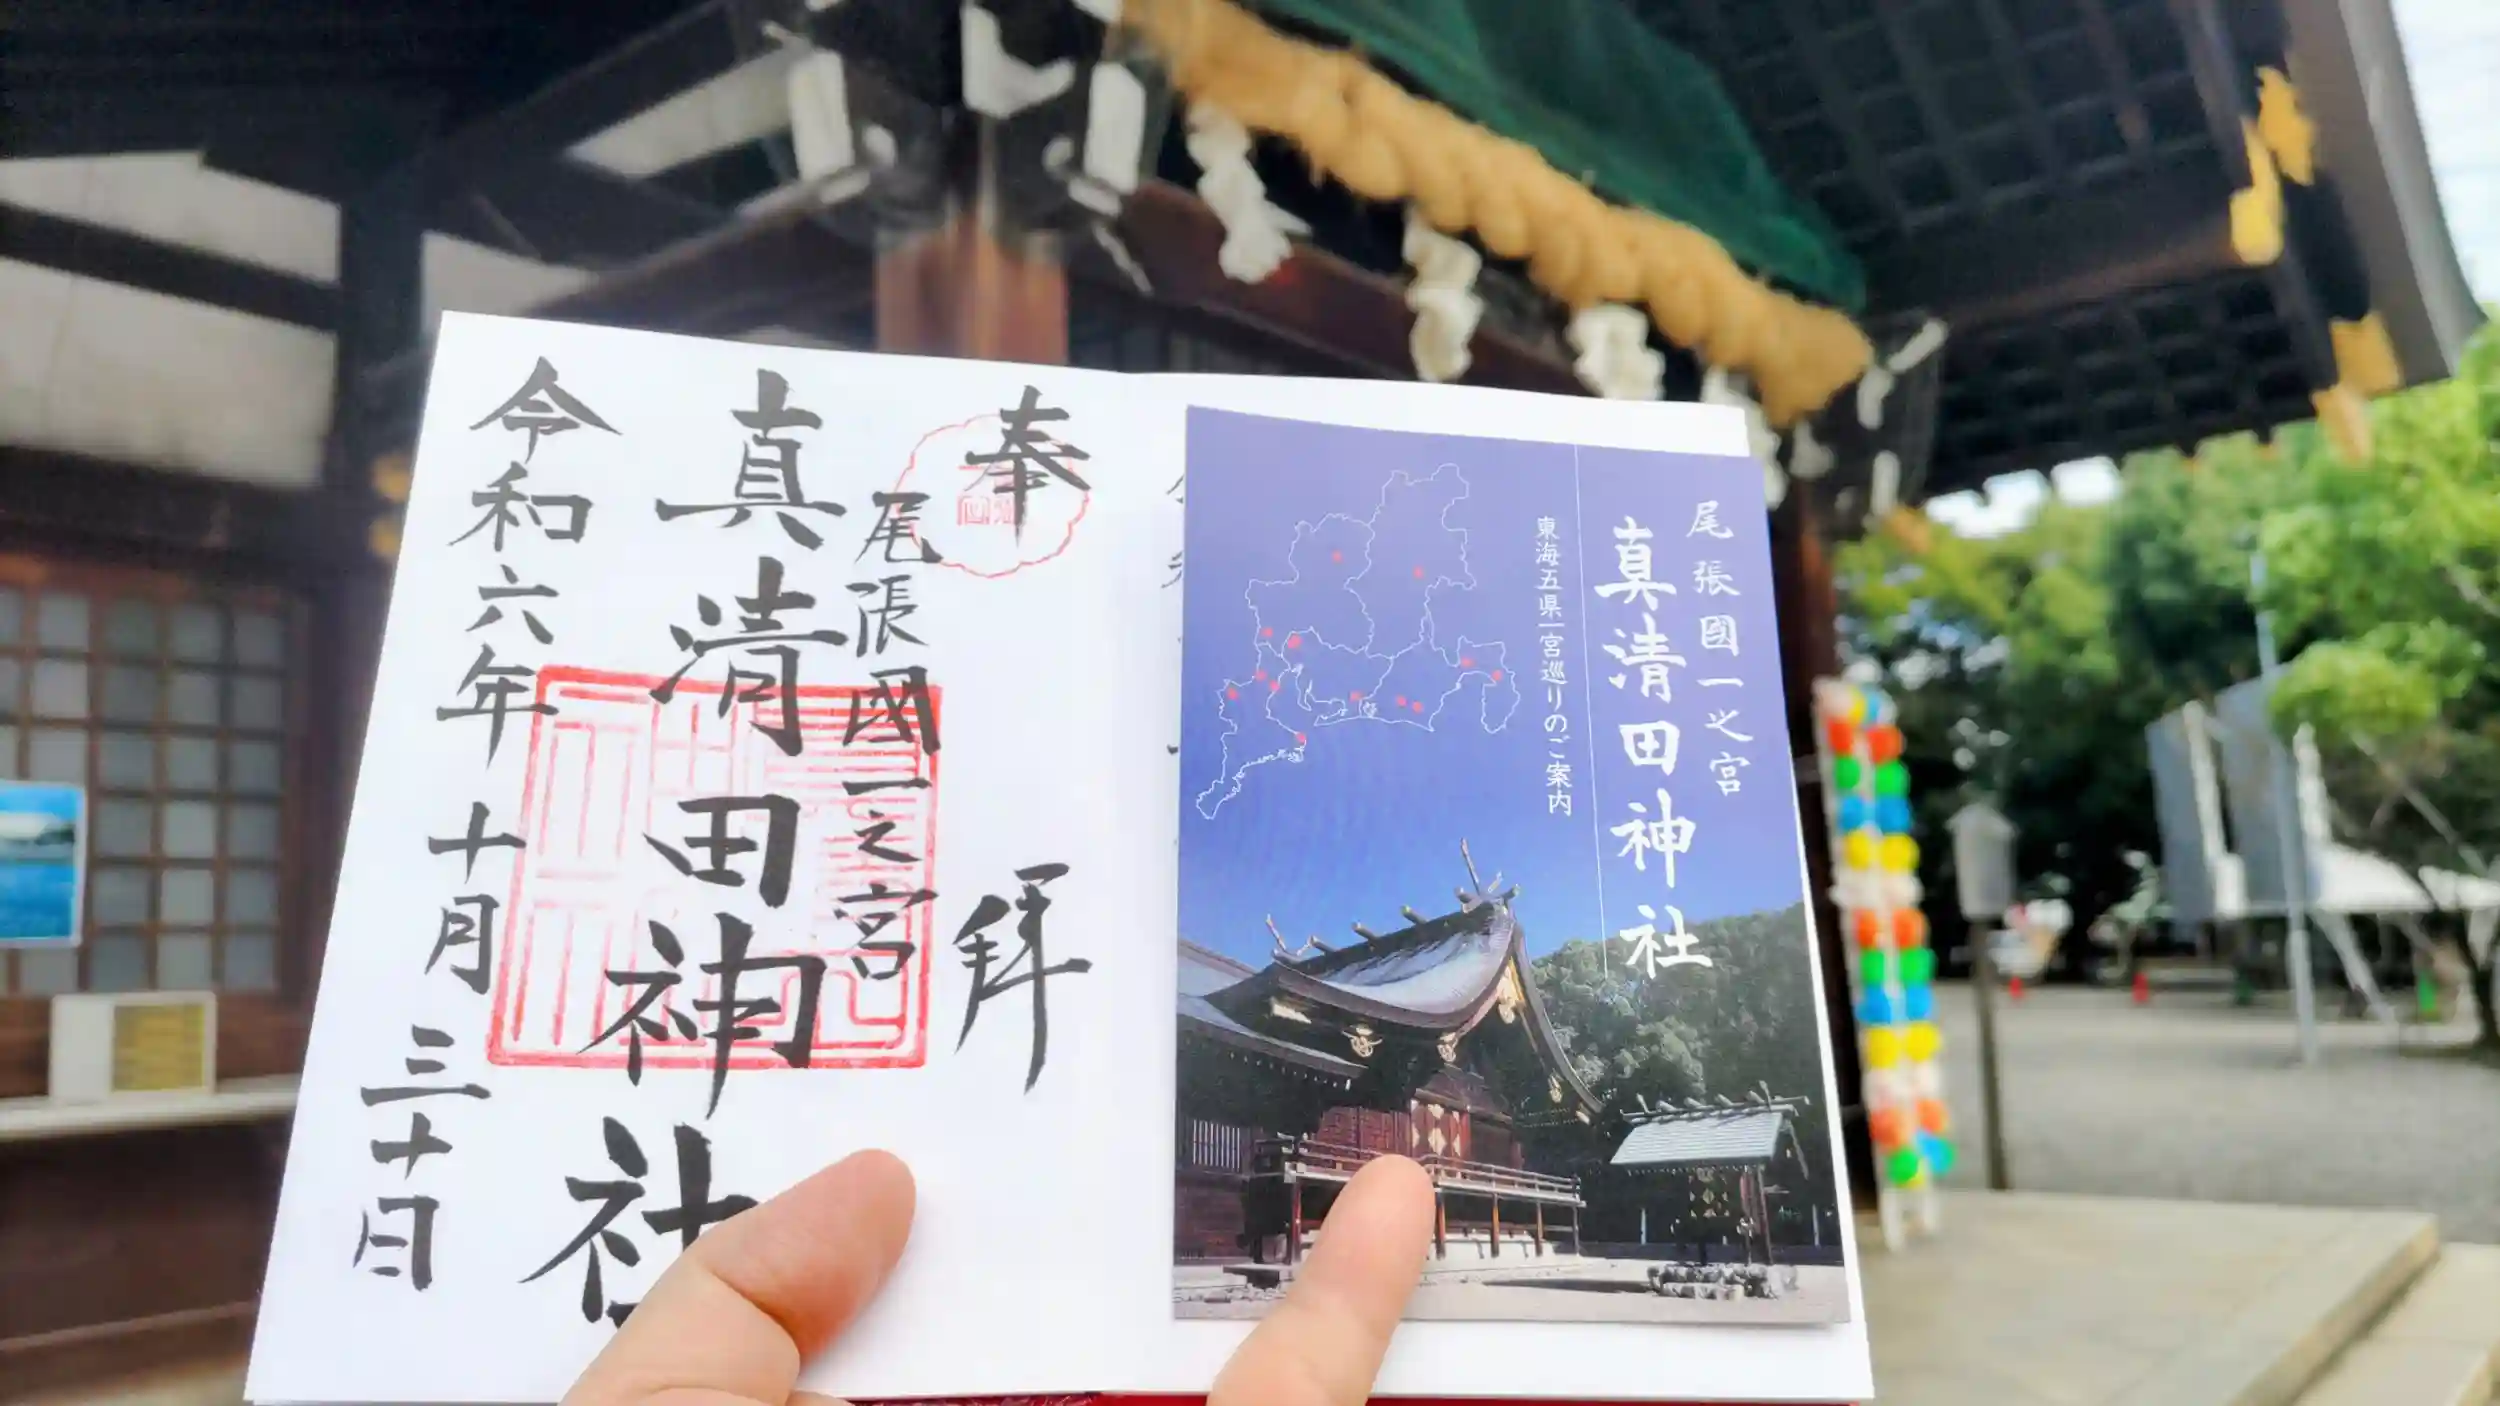 奉拝
尾張國一之宮
真清田神社
令和六年十月三十日
尾張國一之宮
真清田神社
東海五県一宮巡りのご案内